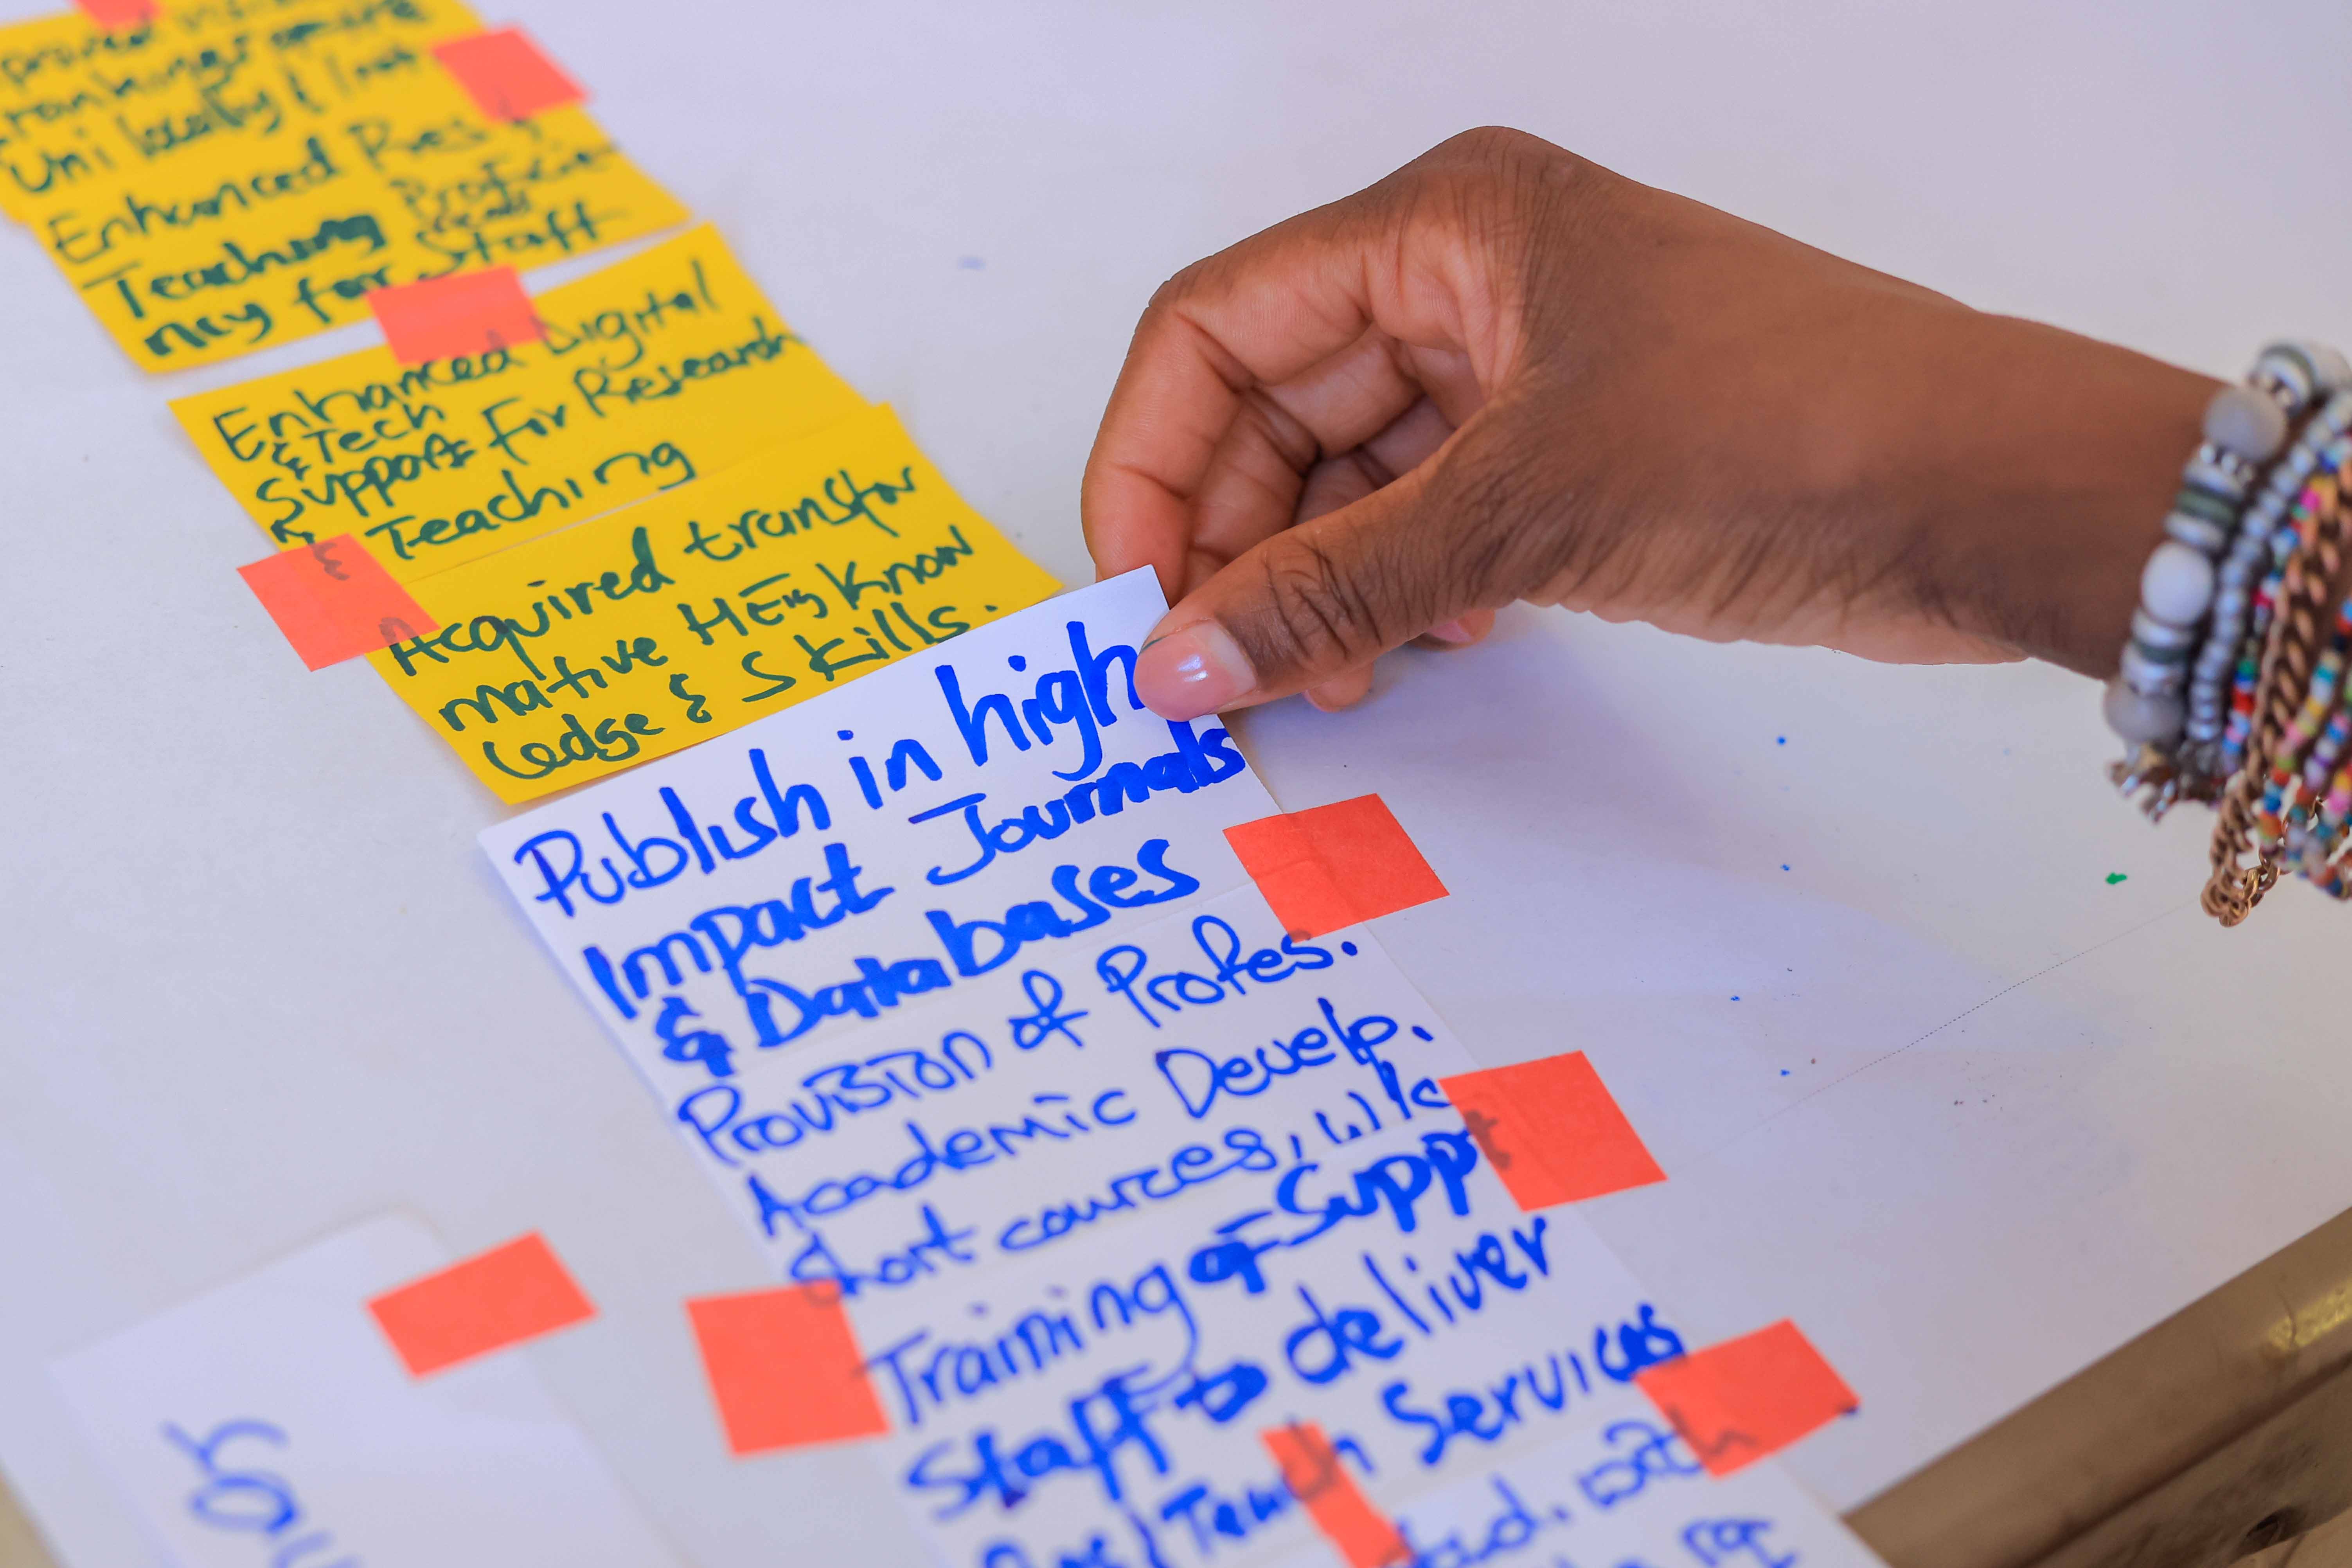 rankings
Uni locally &
Enhanced Res &
Teaching Proficie
ncy for Staff
Enhanced Digital
& Tech
Support For Research
& Teaching
Acquired transfor
mative HEIs Know
ledge & Skills.
Publish in high
Impact Journals
& Databases
Provision of Profes.
Academic Develp.
Short courses, W/s
Training of Suppt
Staff to deliver
Res/Teach Services
with